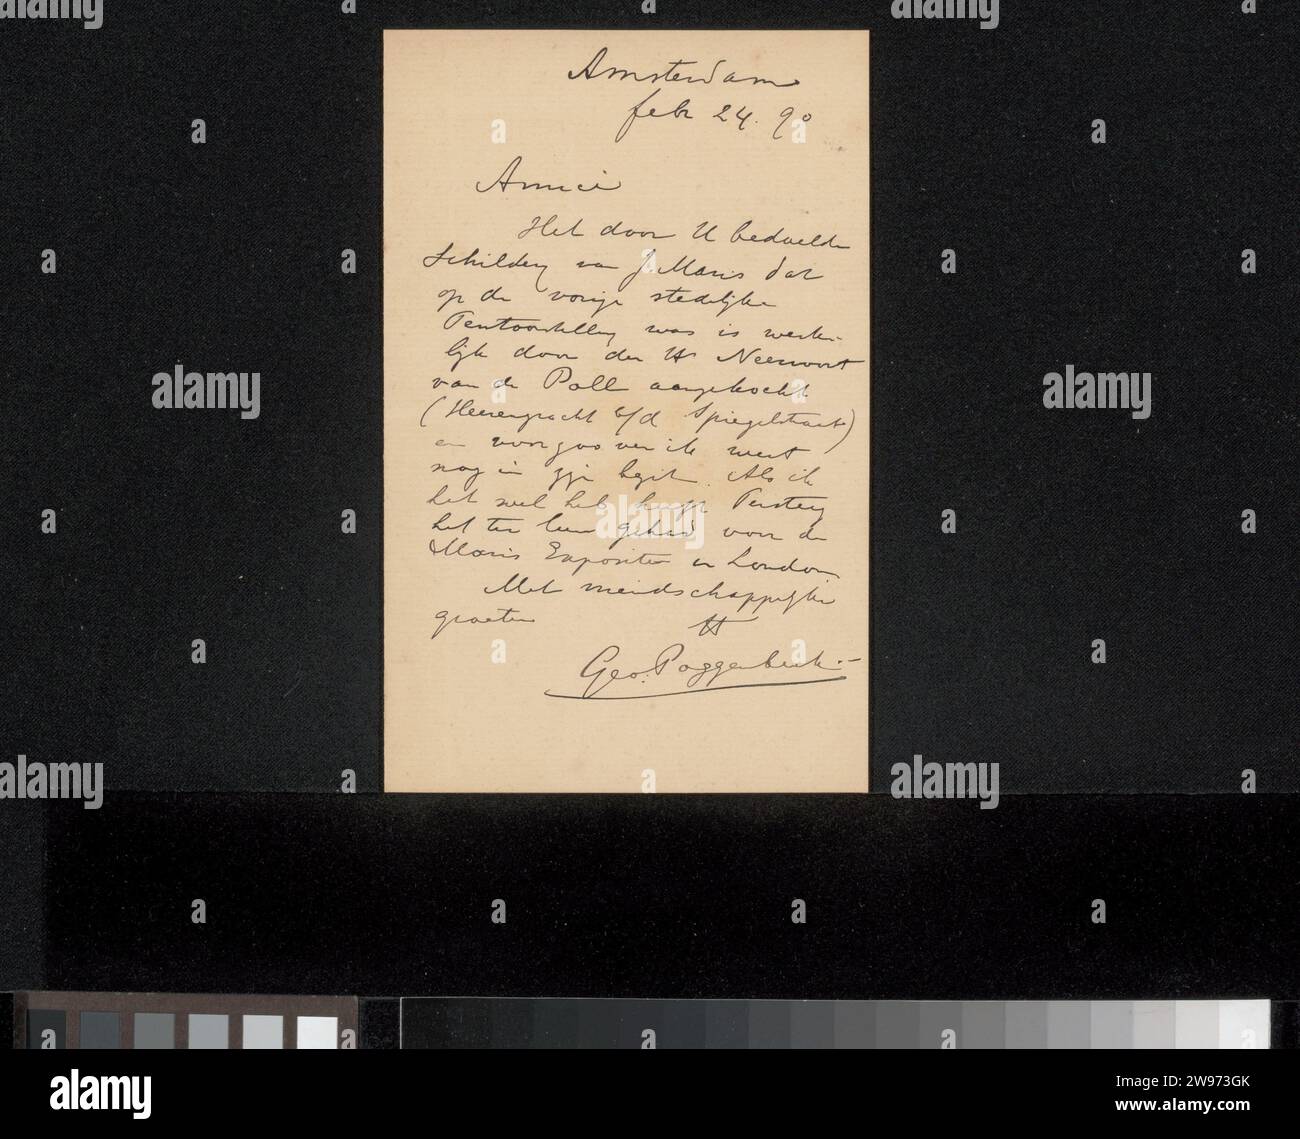 Amsterdam
febr 24. 90
Amice
Het door U bedoelde
Schildery van J. Maris dat
op de vorige stedelijke
Tentoonstelling was is werke-
lijk door den Hr Neervoort
van de Poll aangekocht
(Heerengracht b/d Spiegelstraat)
en voor zoo ver ik weet
nog in zijn bezit. Als ik
het wel heb heeft Tersteeg
het ter leen gehad voor de
Maris Expositie in London
Met vriendschappelijke
groeten
Geo. Poggenbeek.
alamy
Image ID: 2W973GK
www.alamy.com